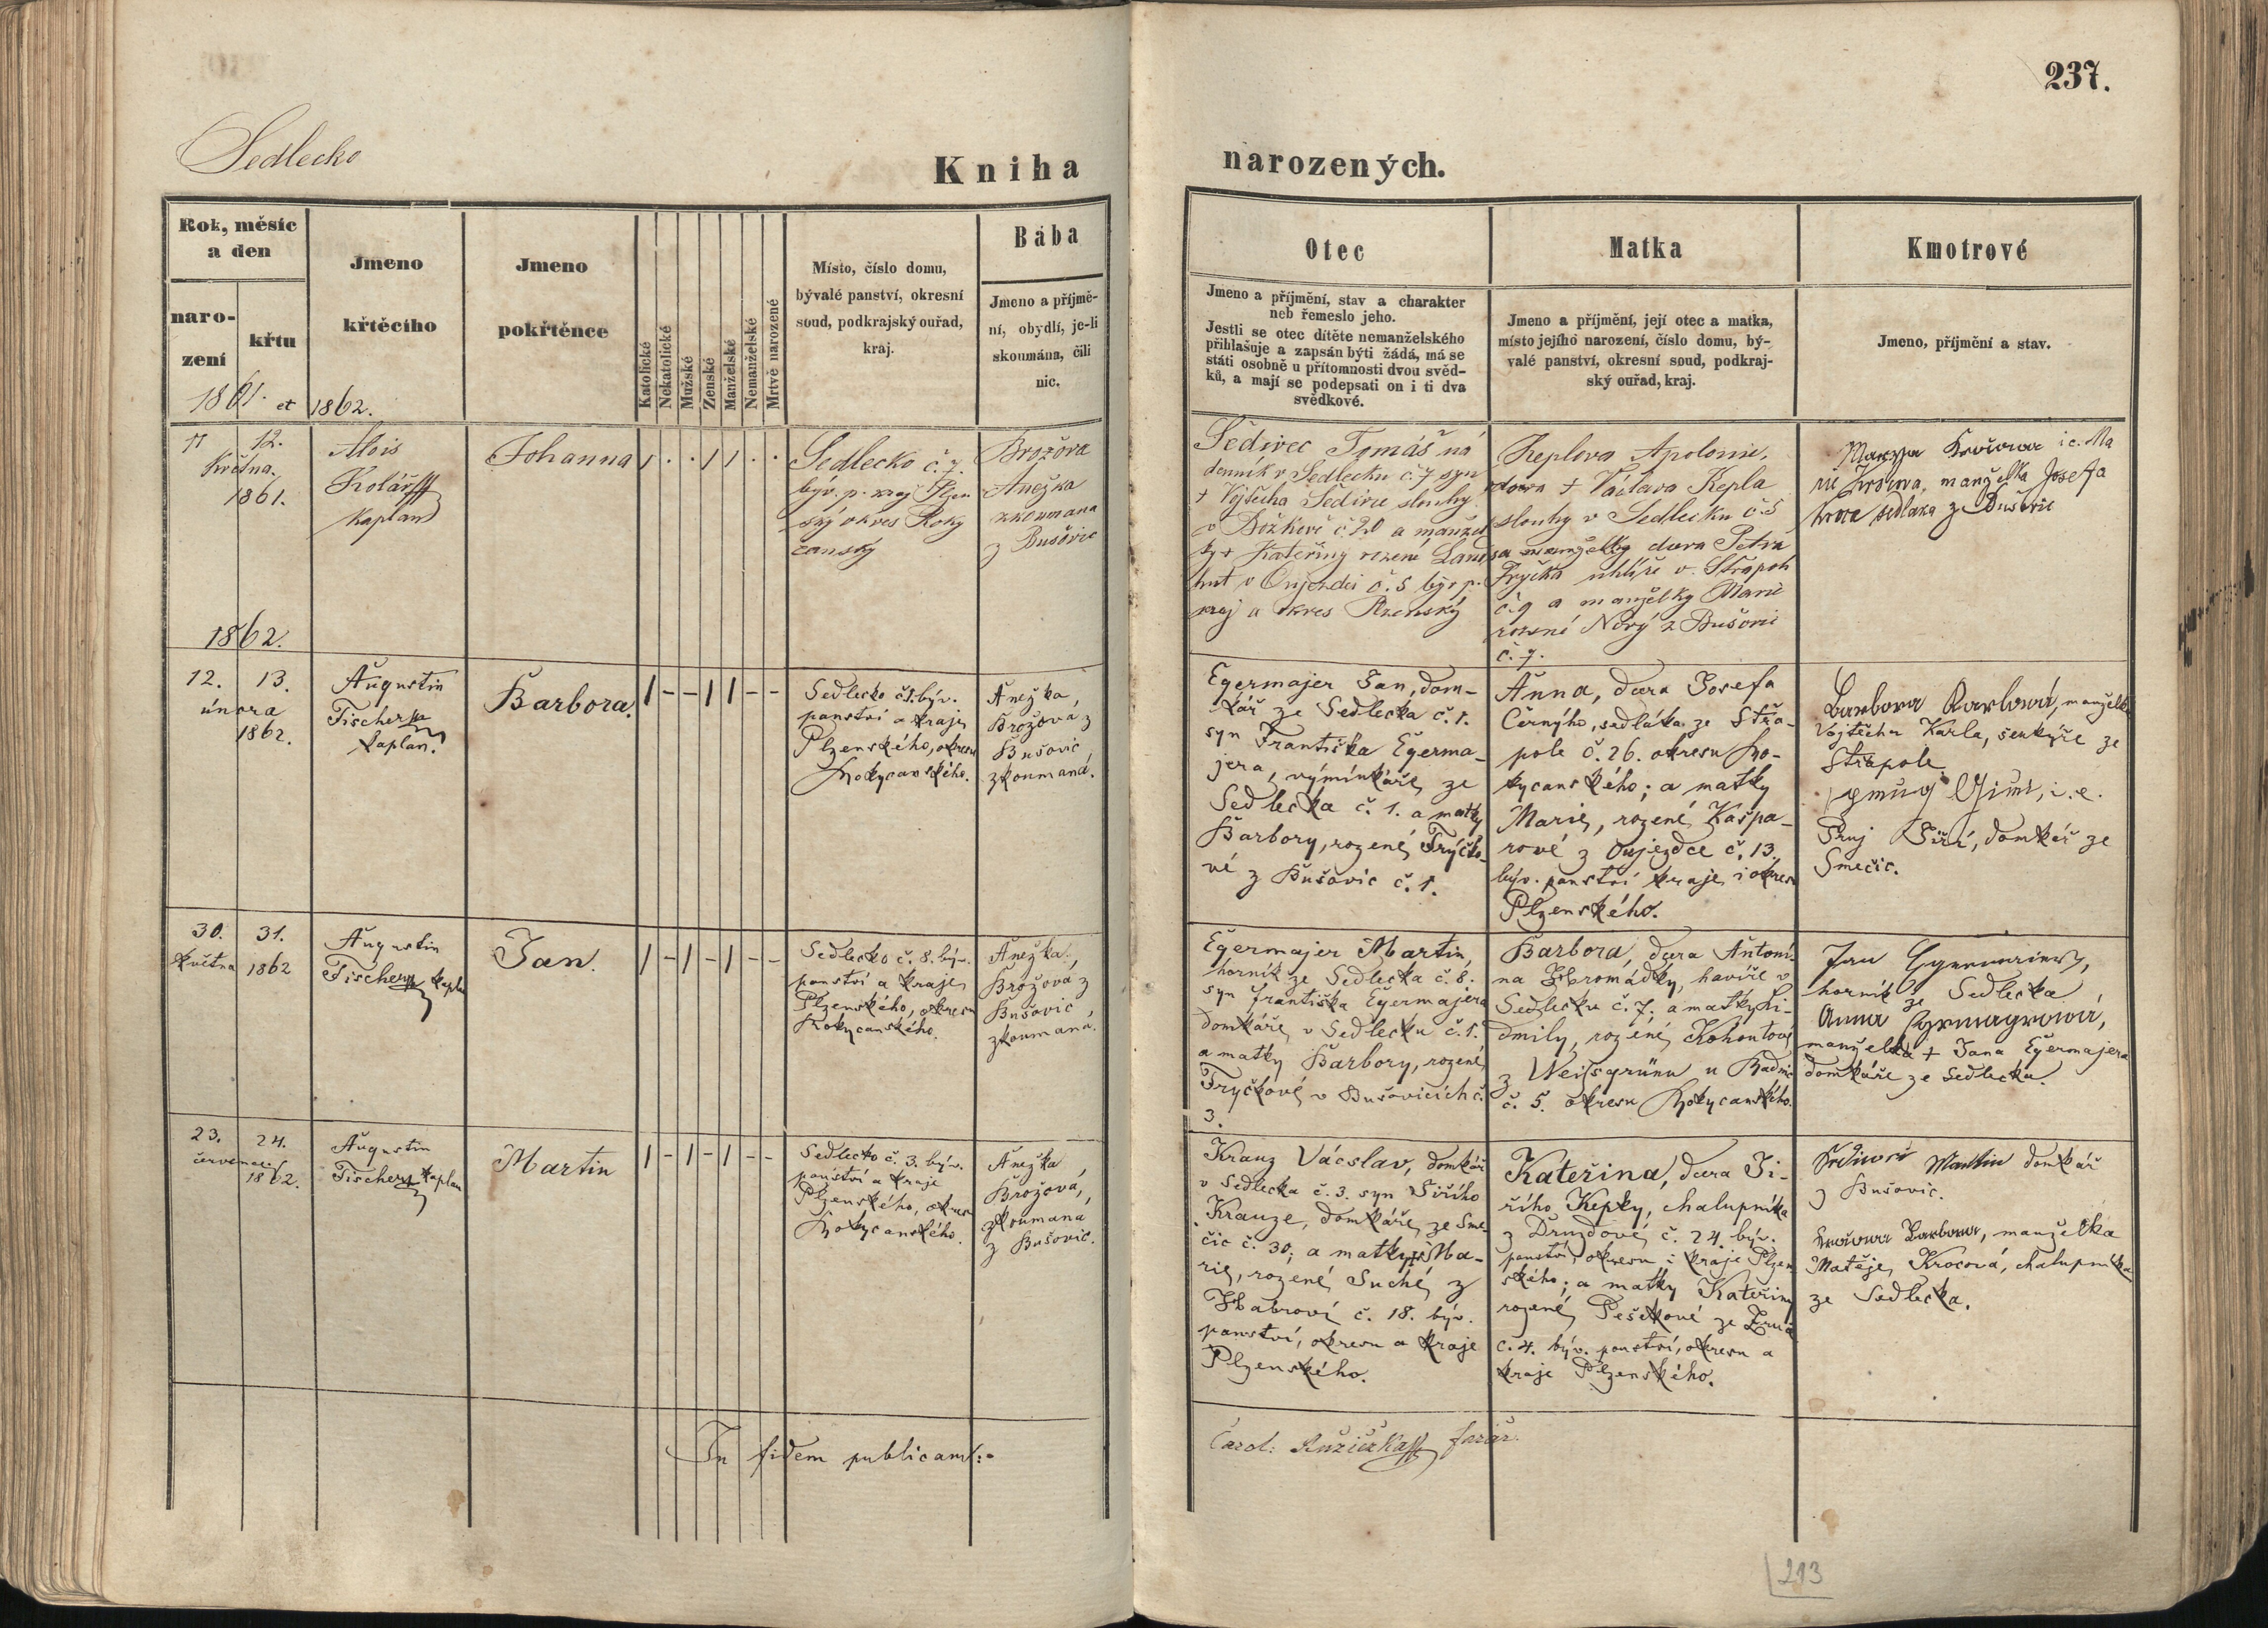 237.
Sedlecko
Kniha narozených.
Rok, měsíc
a den
naro-
zení
křtu
Jmeno
křtěcího
Jmeno
pokřtěnce
Katolické
Nekatolické
Mužské
Ženské
Manželské
Nemanželské
Mrtvě narozené
Místo, číslo domu,
bývalé panství, okresní
soud, podkrajský ouřad,
kraj.
Bába
Jmeno a příjmě-
ní, obydlí, je-li
skoumána, čili
nic.
Otec
Jmeno a příjmění, stav a charakter
neb řemeslo jeho.
Jestli se otec dítěte nemanželského
přihlašuje a zapsán býti žádá, má se
státi osobně u přítomnosti dvou svěd-
ků, a mají se podepsati on i ti dva
svědkové.
Matka
Jmeno a příjmění, její otec a matka,
místo jejího narození, číslo domu, bý-
valé panství, okresní soud, podkraj-
ský ouřad, kraj.
Kmotrové
Jmeno, příjmění a stav.
1861. et 1862.
11 12.
Května
1861.
Alois
Kolář
kaplan
Johanna
1 . . 1 1 . .
Sedlecko č. 7.
býv. p. kraj Plzen
ský okres Roky
canský
Brožova
Anežka
zkoumana
z Bušovic
Šedivec Tomáš ná
denník v Sedlecku č. 7 syn
+ Vojtěcha Šedivce slouhy
v Božkově č. 20 a manžel
ky + Kateřiny rozené Land
hut v Oujezdci č. 5 býv p.
kraj a okres Plzenský
Keplova Apolonie,
dcera + Václava Kepla
slouhy v Sedlecku č. 5
a manželky dcera Petra
Fryčka uhlíře v Střapoli
č. 9 a manželky Marie
rozené Nový z Bušovic
č. 7.
i.e. Ma
manželka Josefa
sedlaka z Bušovic
1862.
12. 13.
února
1862.
Augustin
Fischer
kaplan.
Barbora.
1 - - 1 1 - -
Sedlecko č. 1. býv.
panství a kraje
Plzenského, okresu
Rokycanského.
Anežka,
Brožová z
Bušovic
zkoumaná.
Egermajer Jan, dom-
kář ze Sedlecka č. 1.
syn Františka Egerma-
jera, výminkáře ze
Sedlecka č. 1. a matky
Barbory, rozené Fryčko-
vé z Bušovic č. 1.
Anna, dcera Josefa
Černýho, sedláka ze Střa-
pole č. 26. okresu Ro-
kycanského; a matky
Marie, rozené Kašpa-
rové z Oujezdce č. 13.
býv. panství kraje i okresu
Plzenského.
Barbora Karlová, manželka
Vojtěcha Karla, šenkýře ze
Střapole
i.e.
Jiří, domkář ze
Smečic.
30. 31.
května 1862
Augustin
Fischer kaplan
Jan.
1 - 1 - 1 - -
Sedlecko č. 8. býv.
panství a kraje
Plzenského, okresu
Rokycanského.
Anežka,
Brožova z
Bušovic,
zkoumana.
Egermajer Martin,
horník ze Sedlecka č. 8.
syn františka Egermajera
domkáře v Sedlecku č. 1.
a matky Barbory, rozené
Fryčkové v Bušovicích č.
3.
Barbora, dcera Antoni-
na Hromádky, havíře v
Sedlecku č. 7. a matky Li-
dmily, rozené Kohoutové
z Weisgrünu u Radnic
č. 5. okresu Rokycanského.
Jan
horník ze Sedlecka
Anna
manželka + Jana Egermajera
domkáře ze Sedlecka.
23. 24.
července
1862.
Augustin
Fischer kaplan
Martin
1 - 1 - 1 - -
Sedlecko č. 3. býv.
panství a kraje
Plzenského, okresu
Rokycanského.
Anežka
Brožova,
zkoumana
z Bušovic.
Krauz Václav, domkář
v Sedlecka č. 3. syn Jiřího
Krauze, domkáře ze Sme-
čic č. 30; a matky Ma-
rie, rozené Suché z
Habrové č. 18. býv.
panství, okresu a kraje
Plzenského.
Kateřina, dcera Ji-
řího Kepky, chalupníka
z Druzdové č. 24. býv.
panství, okresu i kraje Plzen
ského; a matky Kateřiny
rozené Pešekové ze Zruč
č. 4. býv. panství, okresu a
kraje Plzenského.
Martin domkář
z Bušovic.
Barbora, manželka
Matěje Krocová, chalupníka
ze Sedlecka.
In fidem publicam:
Carol: Ružička farář.
213